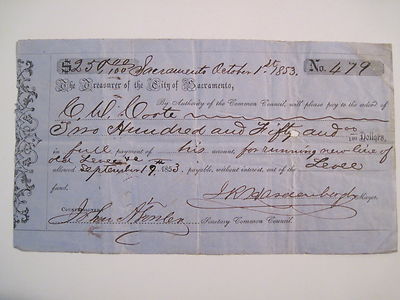 $250 00/100 Sacramento October 1st 1853. No. 479
The Treasurer of the City of Sacramento,
By Authority of the Common Council, will please pay to the order of
C. W. Coote
Two Hundred and Fifty and 00/100 Dollars,
in full payment of his account, for running new line of
Levee
allowed September 19th 1853, payable, without interest, out of the Levee
fund.
J R Hardenbergh Mayor.
Countersigned
Secretary Common Council.